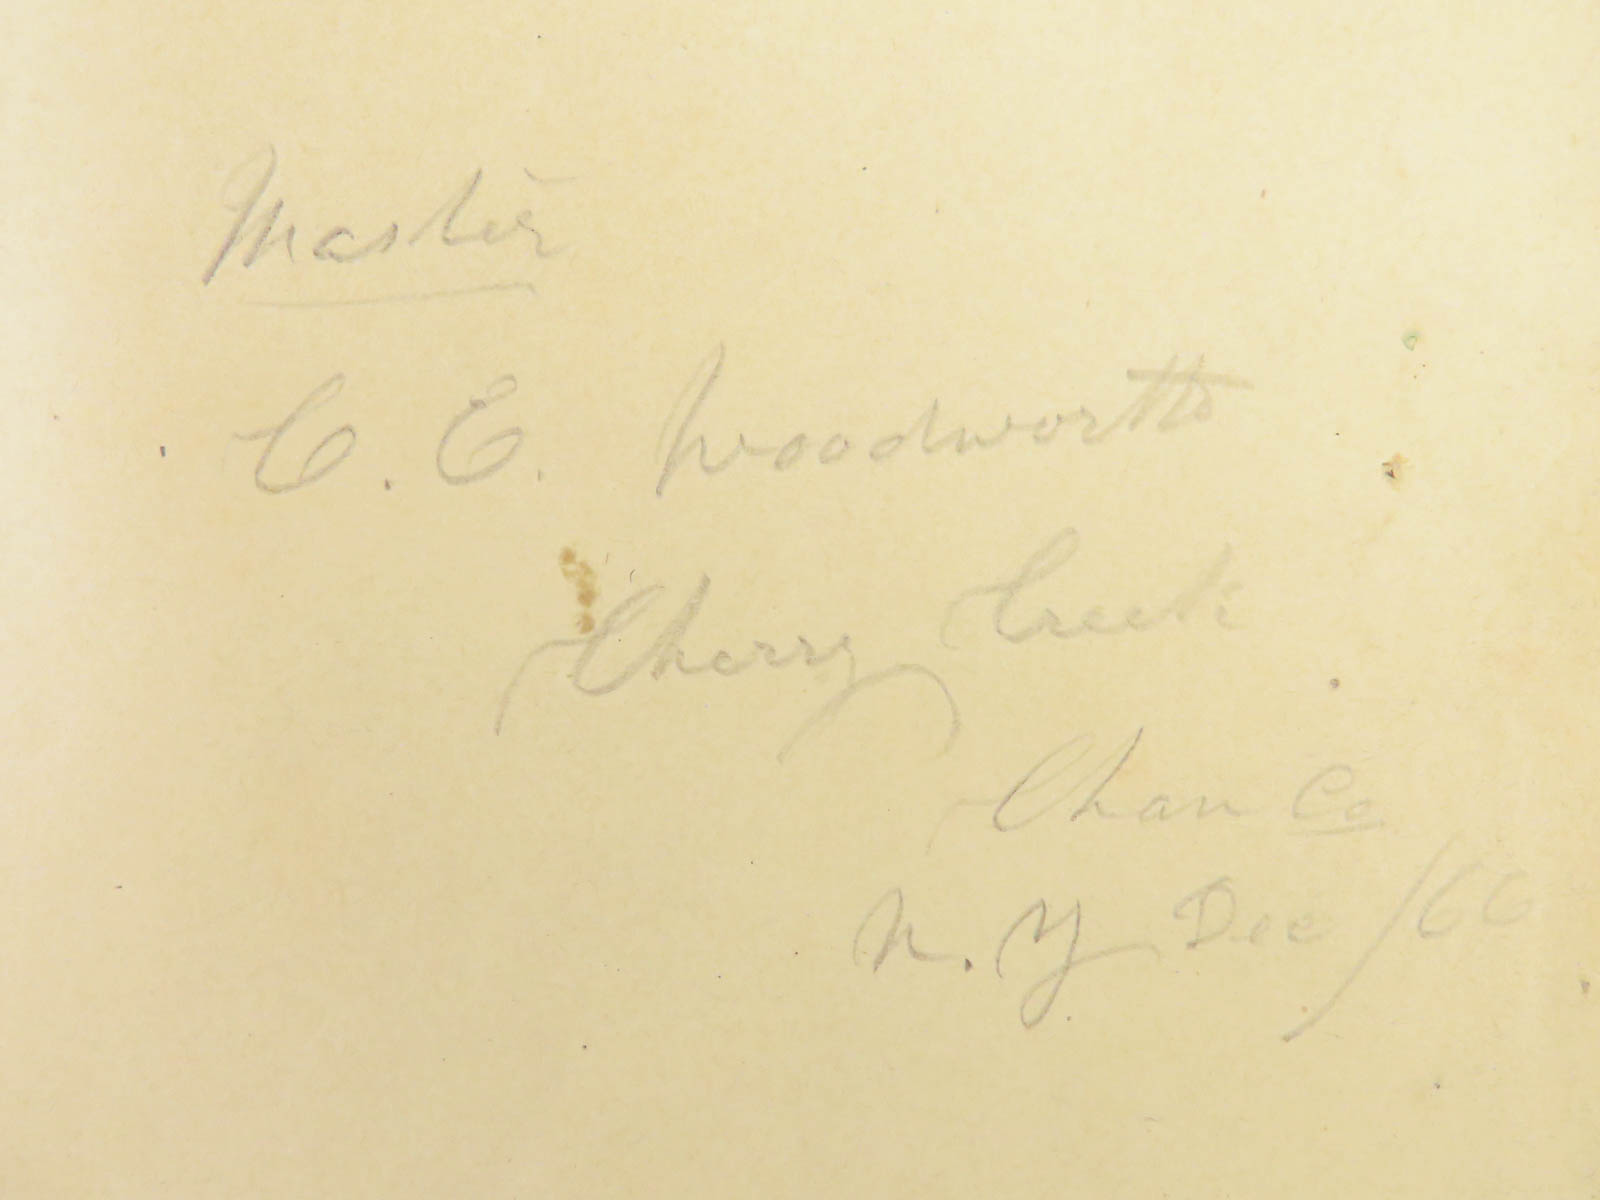 Master
C. E. Woodworth
Cherry Creek
Chau Co
N. Y Dec /66